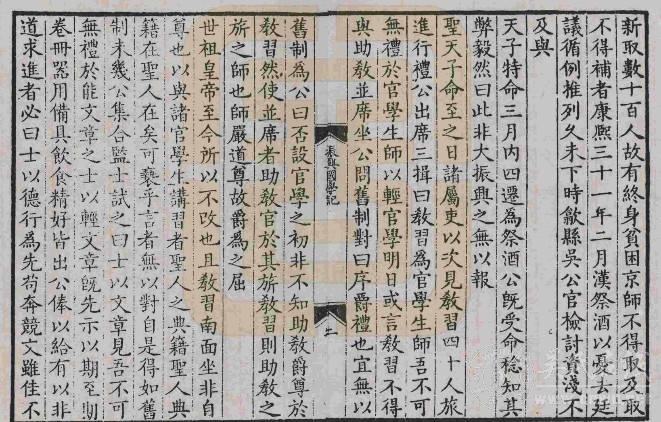 新取數十百人故有終身貧困京師不得取及取
不得補者康熙三十一年二月漢祭酒以憂去廷
議循例推列久未下時歙縣吳公官檢討資淺不
及與
天子特命三月內四遷為祭酒公既受命稔知其
弊毅然曰此非大振興之無以報
聖天子命至之日諸屬吏以次見教習四十人旅
進行禮公出席三揖曰教習為官學生師吾不可
無禮於官學生師以輕官學明日或言教習不得
與助教並席坐公問舊制對曰序爵禮也宜無以
振興國學記
舊制為公曰否設官學之初非不知助教爵尊於
教習然使並席者助教官於其旂教習則助教之
旂之師也師嚴道尊故爵為之屈
世祖皇帝至今所以不改也且教習南面坐非自
尊也以與諸官學生講習者聖人之典籍聖人典
籍在聖人在矣可褻乎言者無以對自是得如舊
制未幾公集合監士試之曰士以文章見吾不可
無禮於能文章之士以輕文章旣先示以期至期
卷冊器用備具飲食精好皆出公俸以給有以非
道求進者必曰士以德行為先苟奔競文雖佳不